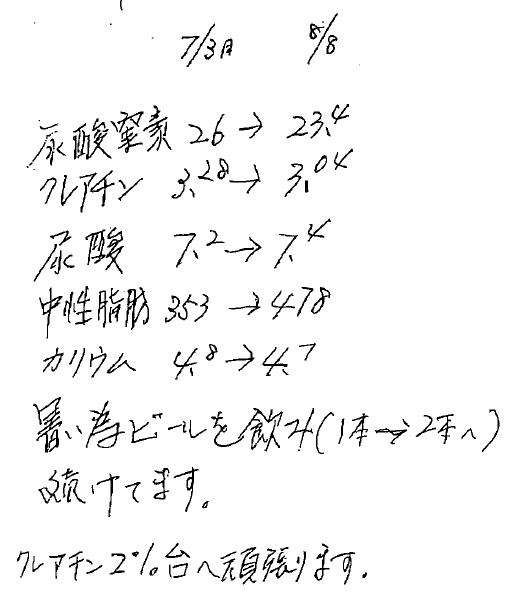 7/3月 8/8
尿酸窒素 26 → 23.4
クレアチン 3.28 → 3.04
尿酸 7.2 → 7.4
中性脂肪 353 → 478
カリウム 4.8 → 4.7
暑い為ビールを飲み(1本→2本へ)
続けてます。
クレアチン2%台へ頑張ります.